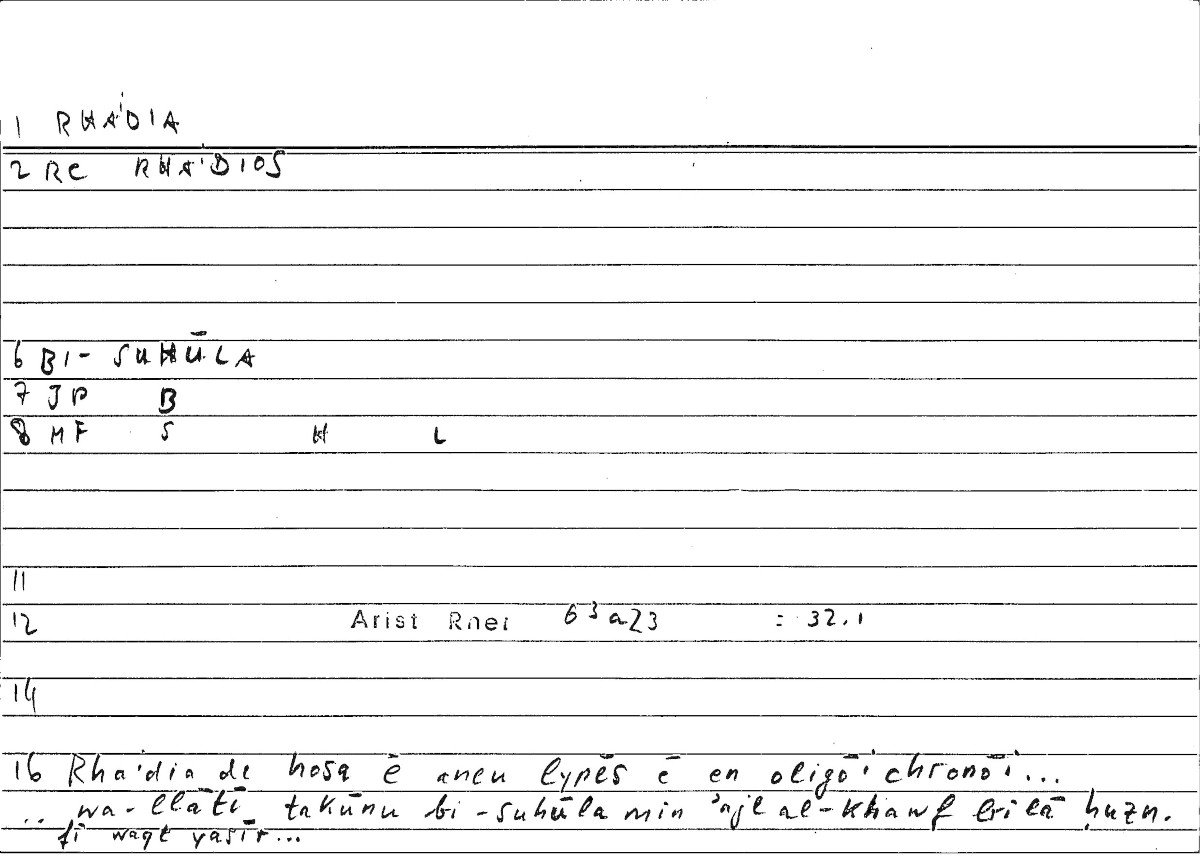 11 RHA'DIA
2 RC RHA'DIOS
6 BI- SUHŪLA
7 JP B
8 MF S H L
11
12 Arist Rhet 63a23 = 32.1
14
16 Rha'dia de hosa ē aneu lypēs ē en oligōi chronōi...
.. wa-llātī takūnu bi-suhūla min 'ajl al-khawf bilā ḥuzn.
fī waqt yasīr...